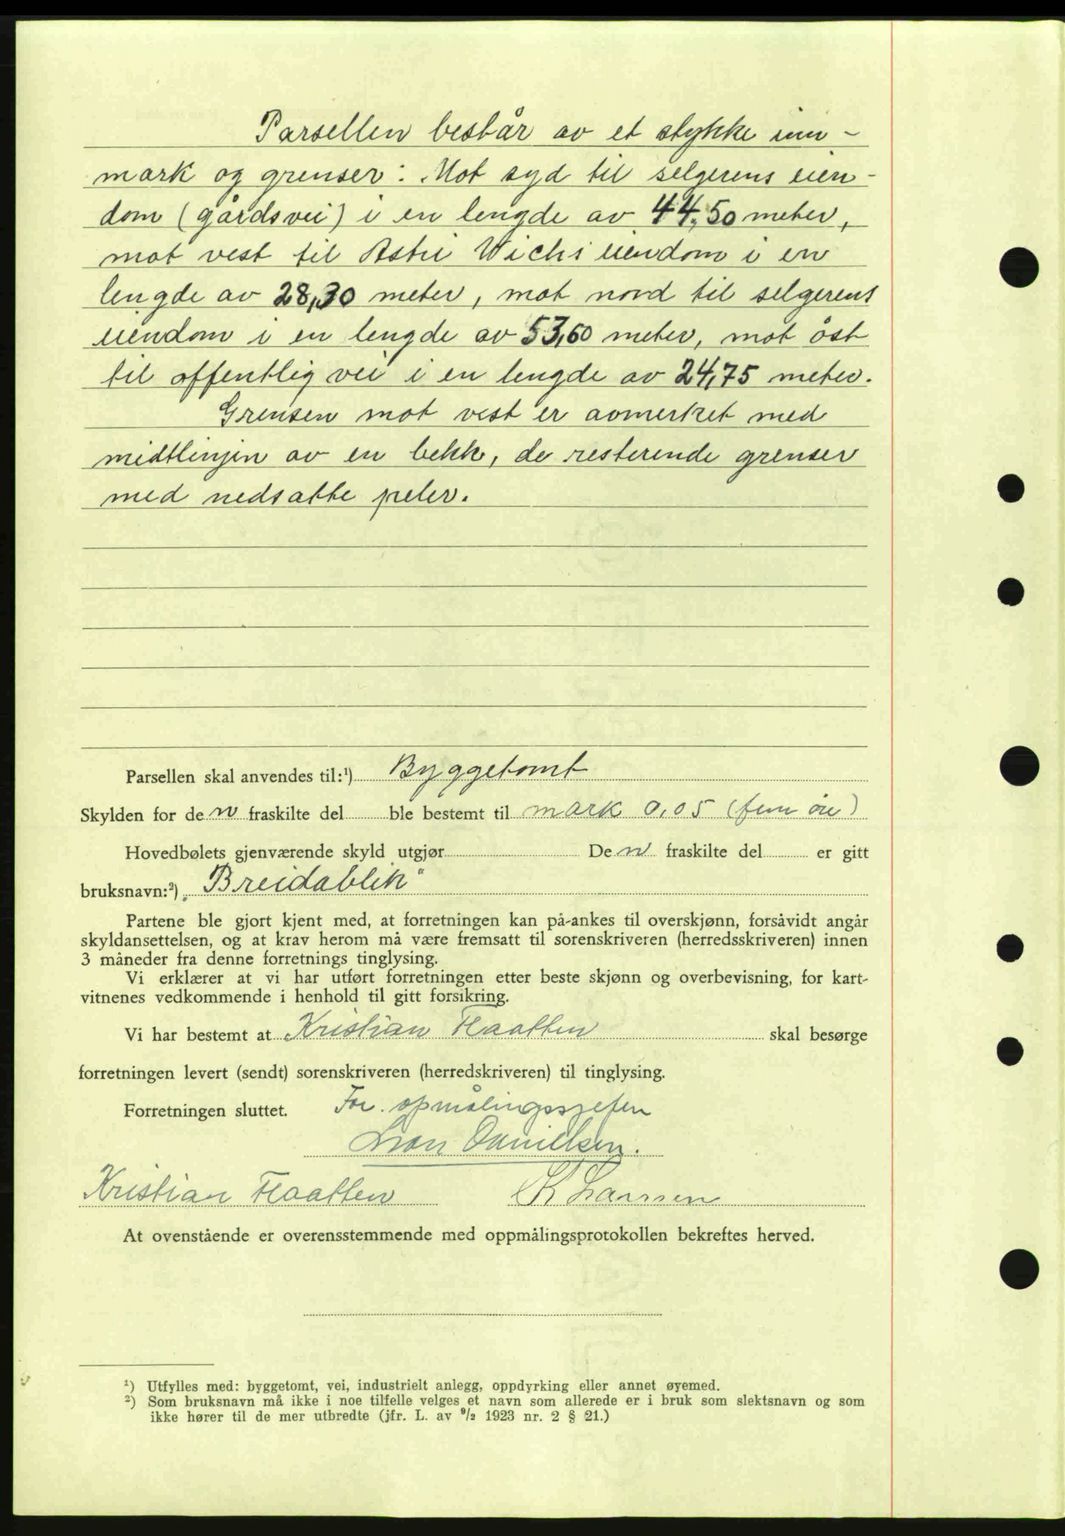 Parsellen består av et stykke inn-
mark og grenser: Mot syd til selgerens eien-
dom (gårdsvei) i en lengde av 44,50 meter,
mot vest til Astri Wichs eiendom i en
lengde av 28,30 meter, mot nord til selgerens
eiendom i en lengde av 53,60 meter, mot öst
til offentlig vei i en lengde av 24,75 meter.
Grensen mot vest er avmerket med
midtlinjen av en bekk, de resterende grenser
med nedsatte peler.
Parsellen skal anvendes til:¹) Byggetomt
Skylden for den fraskilte del ble bestemt til mark 0,05 (fem øre)
Hovedbølets gjenværende skyld utgjør Den fraskilte del er gitt
bruksnavn:²) „Breidablik"
Partene ble gjort kjent med, at forretningen kan på-ankes til overskjønn, forsåvidt angår
skyldansettelsen, og at krav herom må være fremsatt til sorenskriveren (herredsskriveren) innen
3 måneder fra denne forretnings tinglysing.
Vi erklærer at vi har utført forretningen etter beste skjønn og overbevisning, for kart-
vitnenes vedkommende i henhold til gitt forsikring.
Vi har bestemt at Kristian Flaatten skal besørge
forretningen levert (sendt) sorenskriveren (herredskriveren) til tinglysing.
Forretningen sluttet. For opmålingssjefen
Danielsen.
Kristian Flaatten K Larssen
At ovenstående er overensstemmende med oppmålingsprotokollen bekreftes herved.
¹) Utfylles med: byggetomt, vei, industrielt anlegg, oppdyrking eller annet øyemed.
²) Som bruksnavn må ikke i noe tilfelle velges et navn som allerede er i bruk som slektsnavn og som
ikke hører til de mer utbredte (jfr. L. av ⁹/₂ 1923 nr. 2 § 21.)